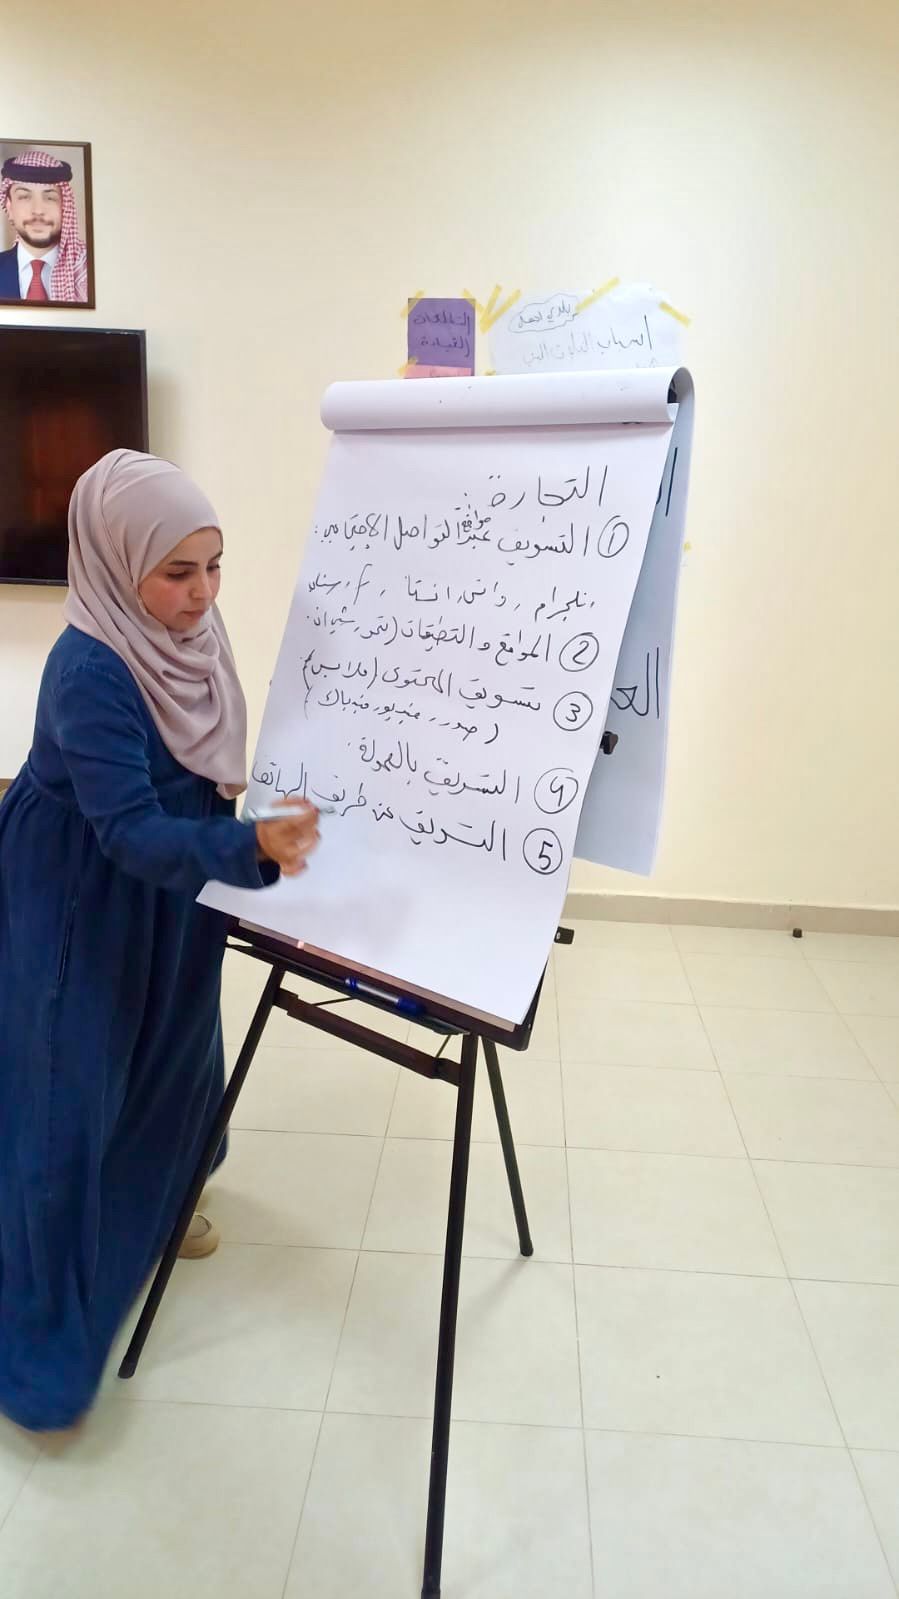 التطلعات
القيادة
بلدي أجمل
التجارة
① التسويق عبر مواقع التواصل الاجتماعي:
تلجرام، واتس، انستا، f، سناب
② المواقع والتطبيقات (تمو، شي ان.
③ تسويق المحتوى (ملابس)
(صور، فيديو، فيدباك)
④ التسويق بالعمولة.
⑤ التسويق عن طريق الهاتف
الع